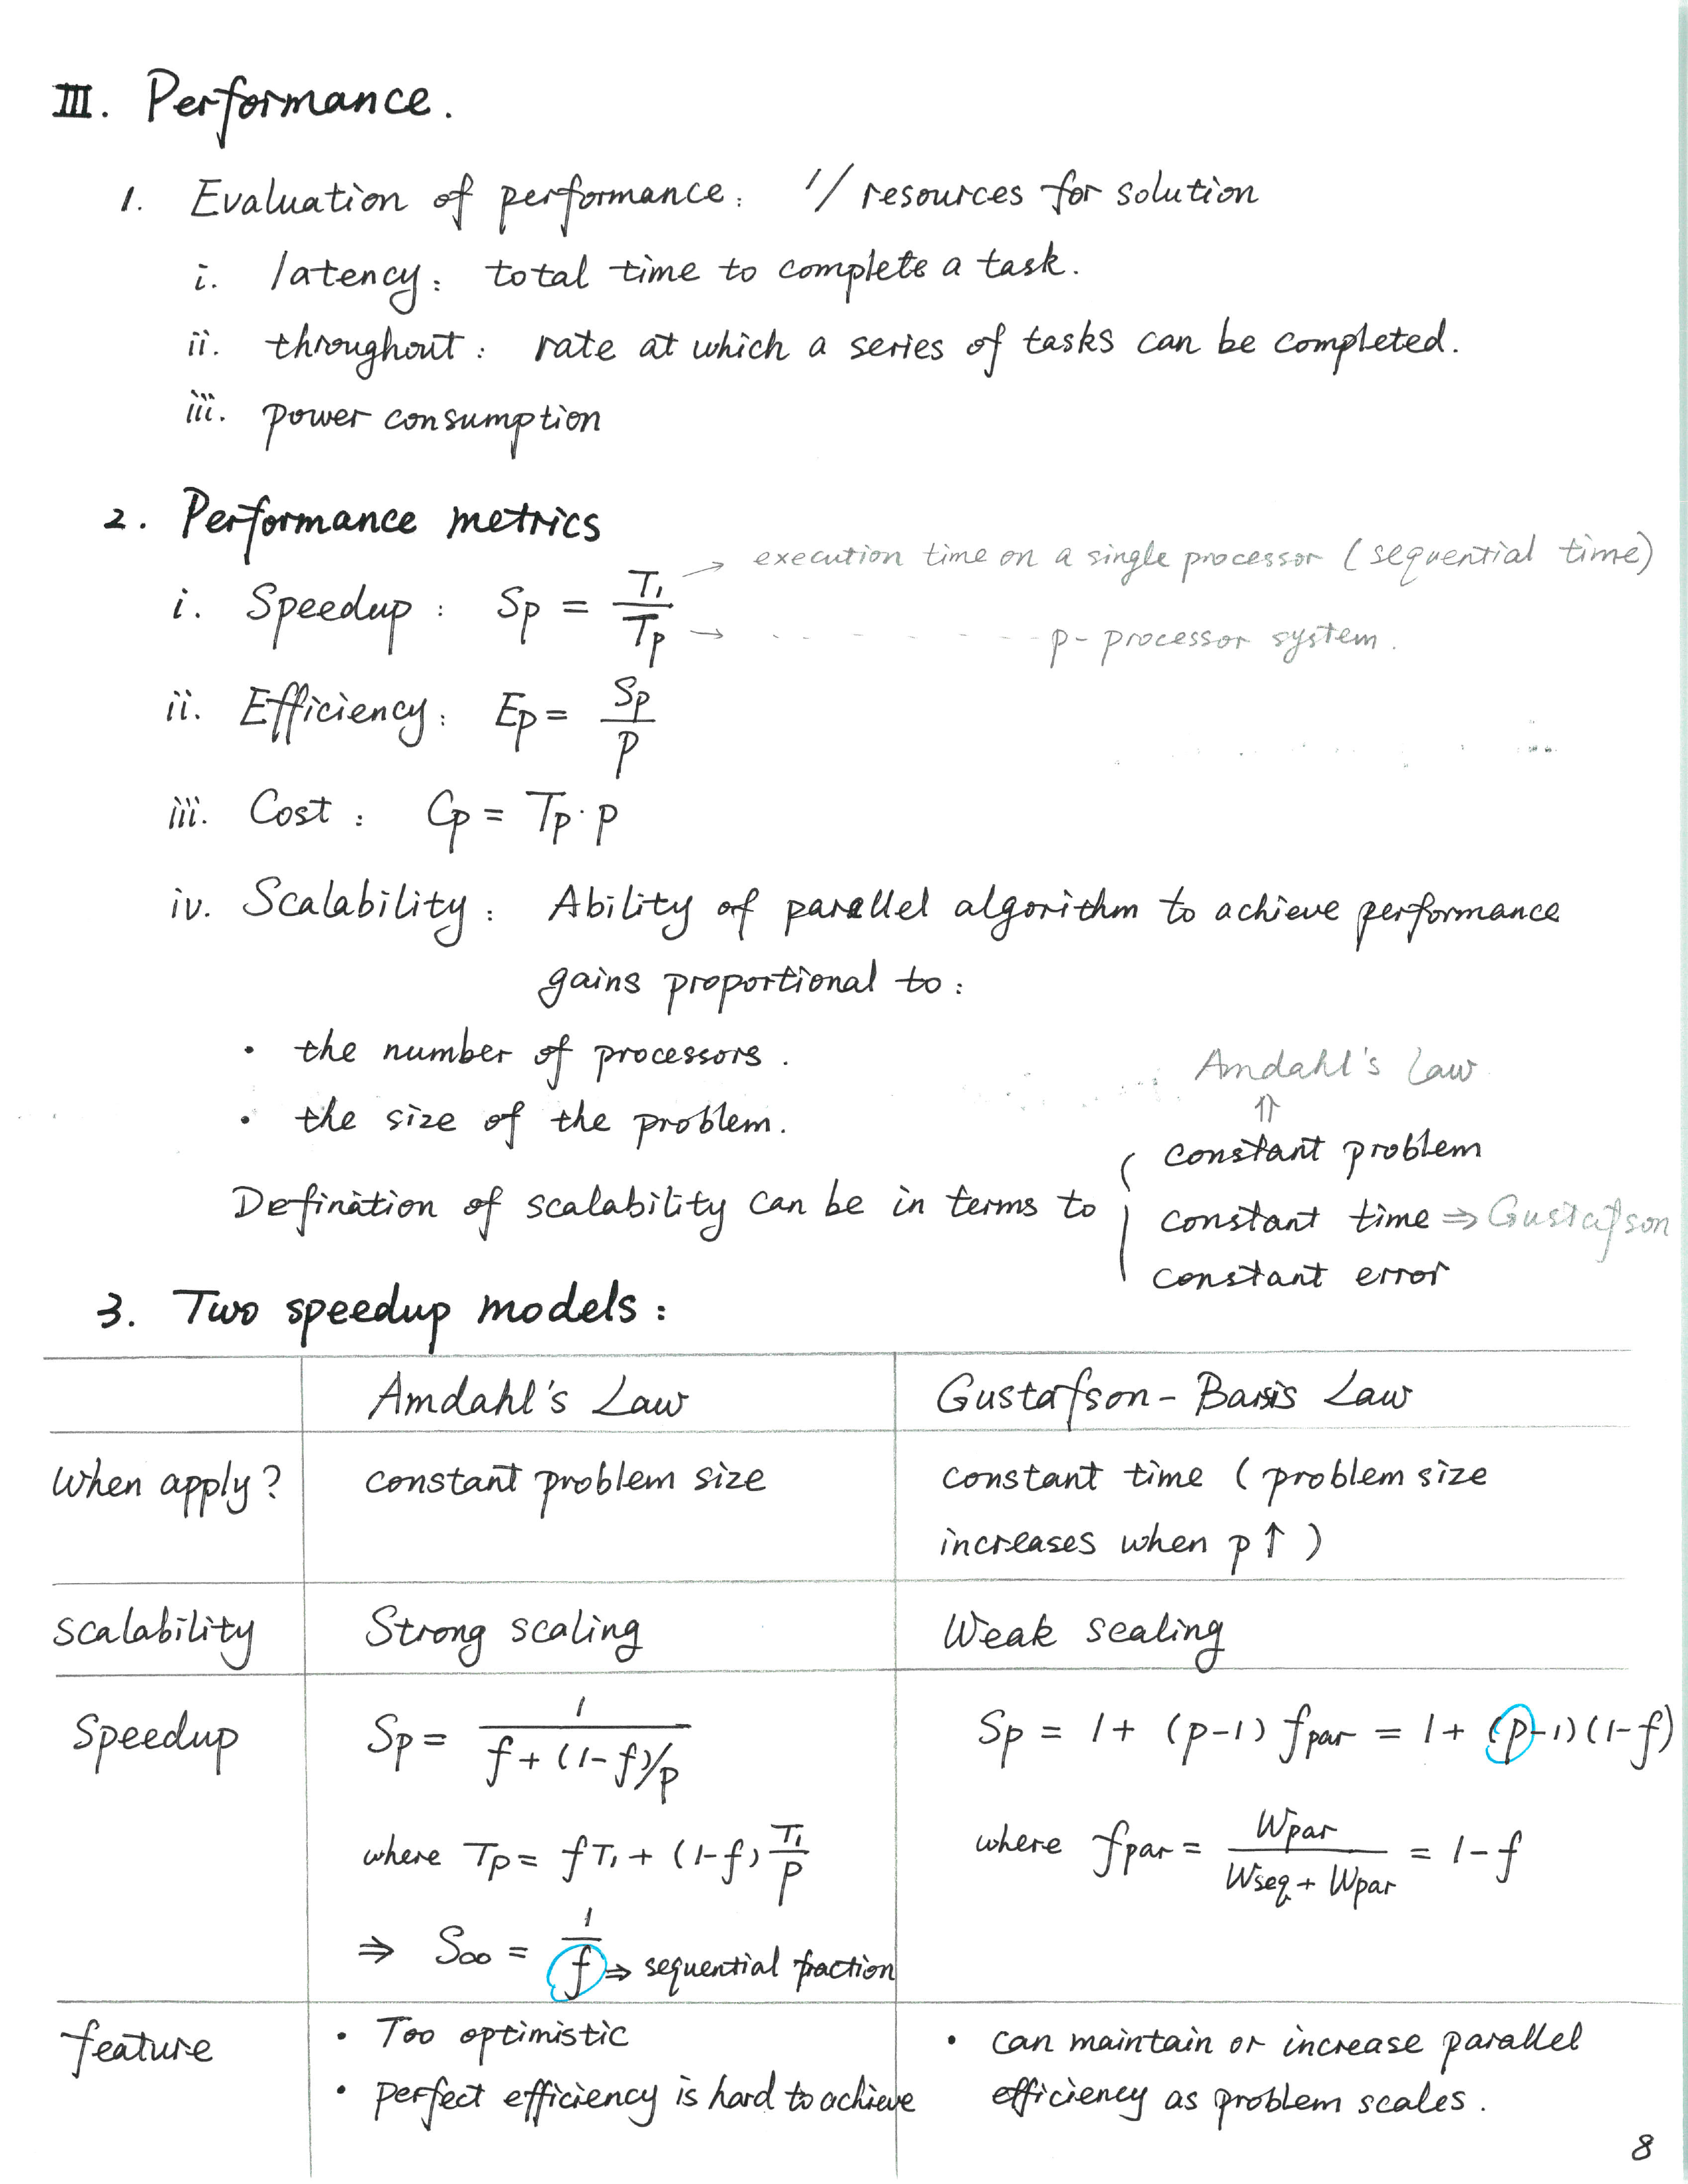 III. Performance.
1. Evaluation of performance: 1/ resources for solution
i. latency: total time to complete a task.
ii. throughout: rate at which a series of tasks can be completed.
iii. power consumption
2. Performance metrics
i. Speedup: Sp = T1/Tp
→ execution time on a single processor (sequential time)
→ - - - - - - p-processor system.
ii. Efficiency: Ep = Sp/P
iii. Cost: Cp = Tp·p
iv. Scalability: Ability of parallel algorithm to achieve performance
gains proportional to:
• the number of processors.
• the size of the problem.
Amdahl's Law
⇑
constant problem
Defination of scalability can be in terms to
constant time ⇒ Gustafson
constant error
3. Two speedup models:
Amdahl's Law Gustafson-Barsis Law
When apply? constant problem size constant time (problem size
increases when p↑)
scalability Strong scaling Weak scaling
Speedup Sp = 1/(f+(1-f)/p) Sp = 1+(p-1) fpar = 1+(p-1)(1-f)
where Tp = fT1 + (1-f) T1/P where fpar = Wpar/(Wseq+Wpar) = 1-f
⇒ S∞ = 1/f ⇒ sequential fraction
feature • Too optimistic • can maintain or increase parallel
• perfect efficiency is hard to achieve efficiency as problem scales.
8